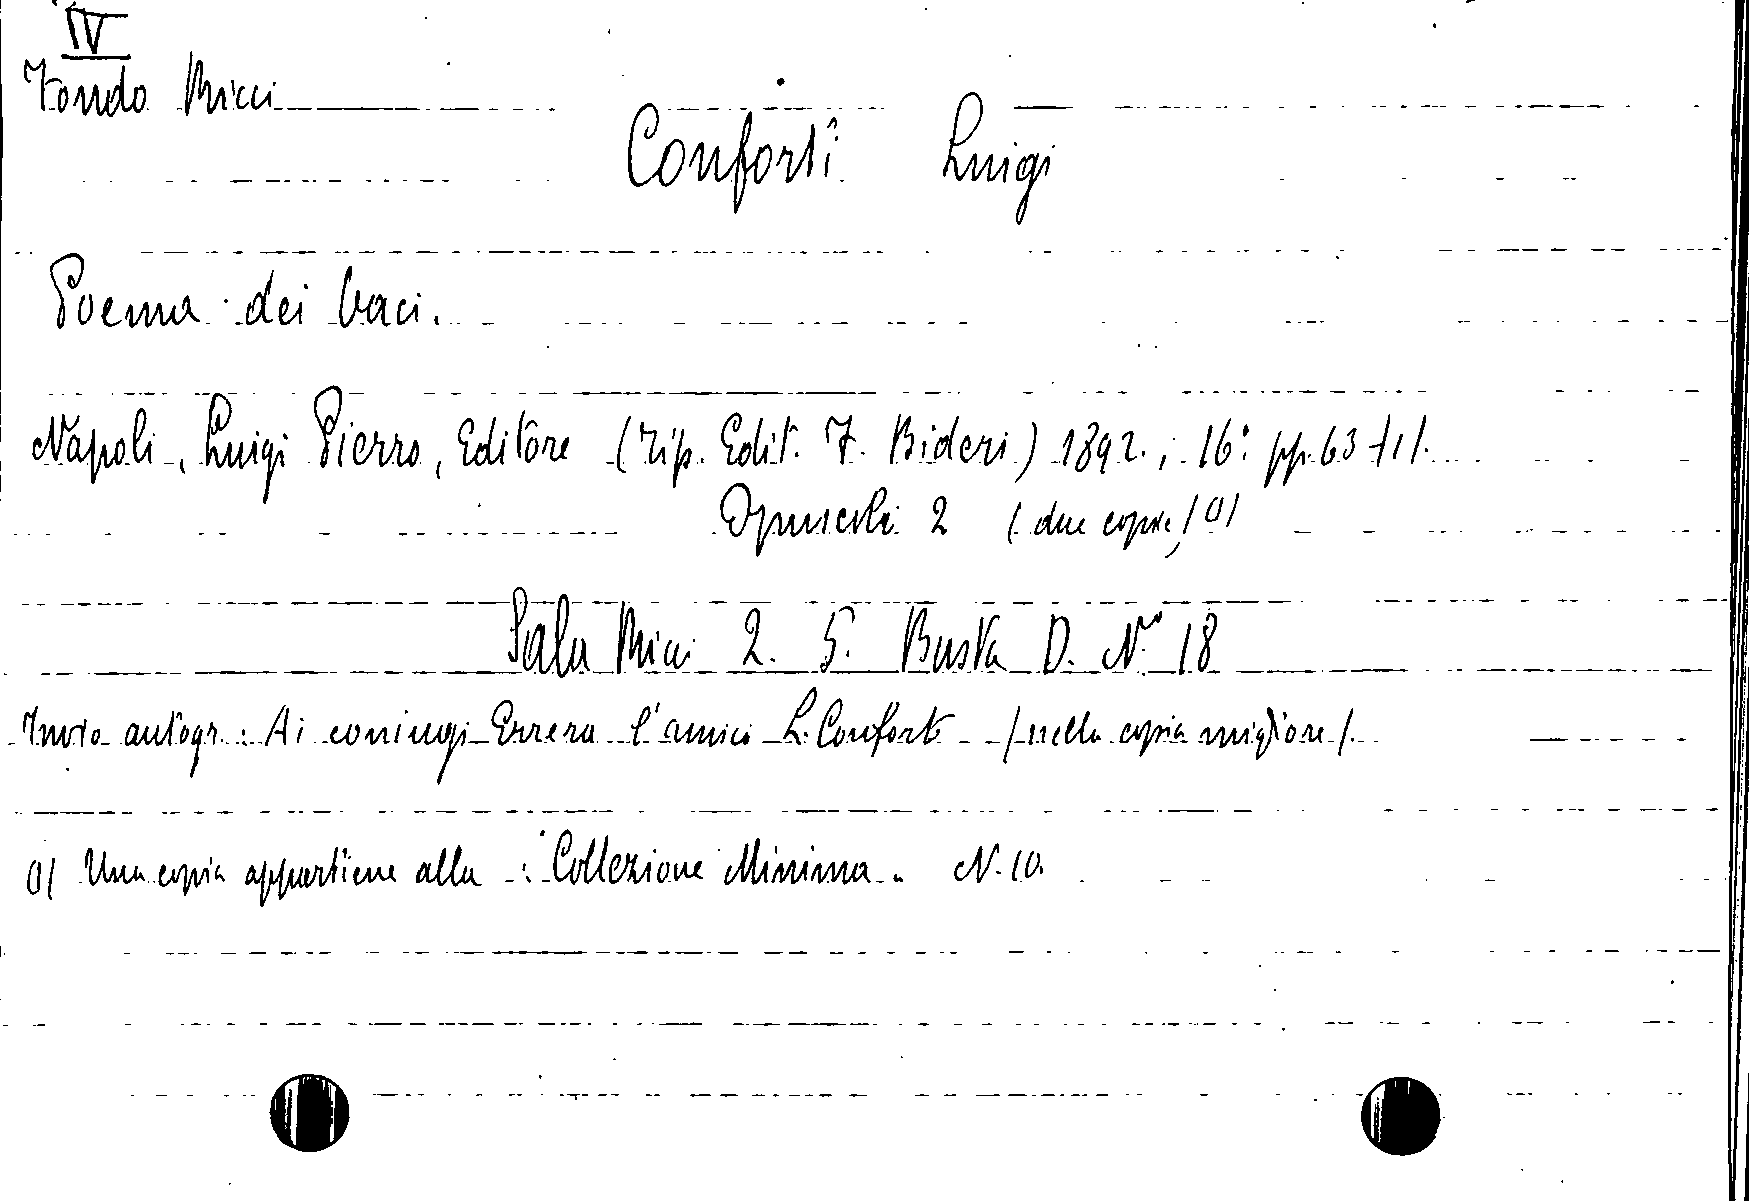 IV
Fondo Ricci
Conforti Luigi
Poema dei baci.
Napoli, Luigi Pierro, Editore (Tip. Edit. F. Bideri) 1892.; 16° pp. 63 +1/.
Opuscoli 2 (due copie) 0/
Sala Ricci 2. 5. Busta D. N° 18
Invio autogr.: Ai coniugi Errera l'amico L. Conforti /nella copia migliore/.
0/ Una copia appartiene alla : Collezione Minima. N. 10.